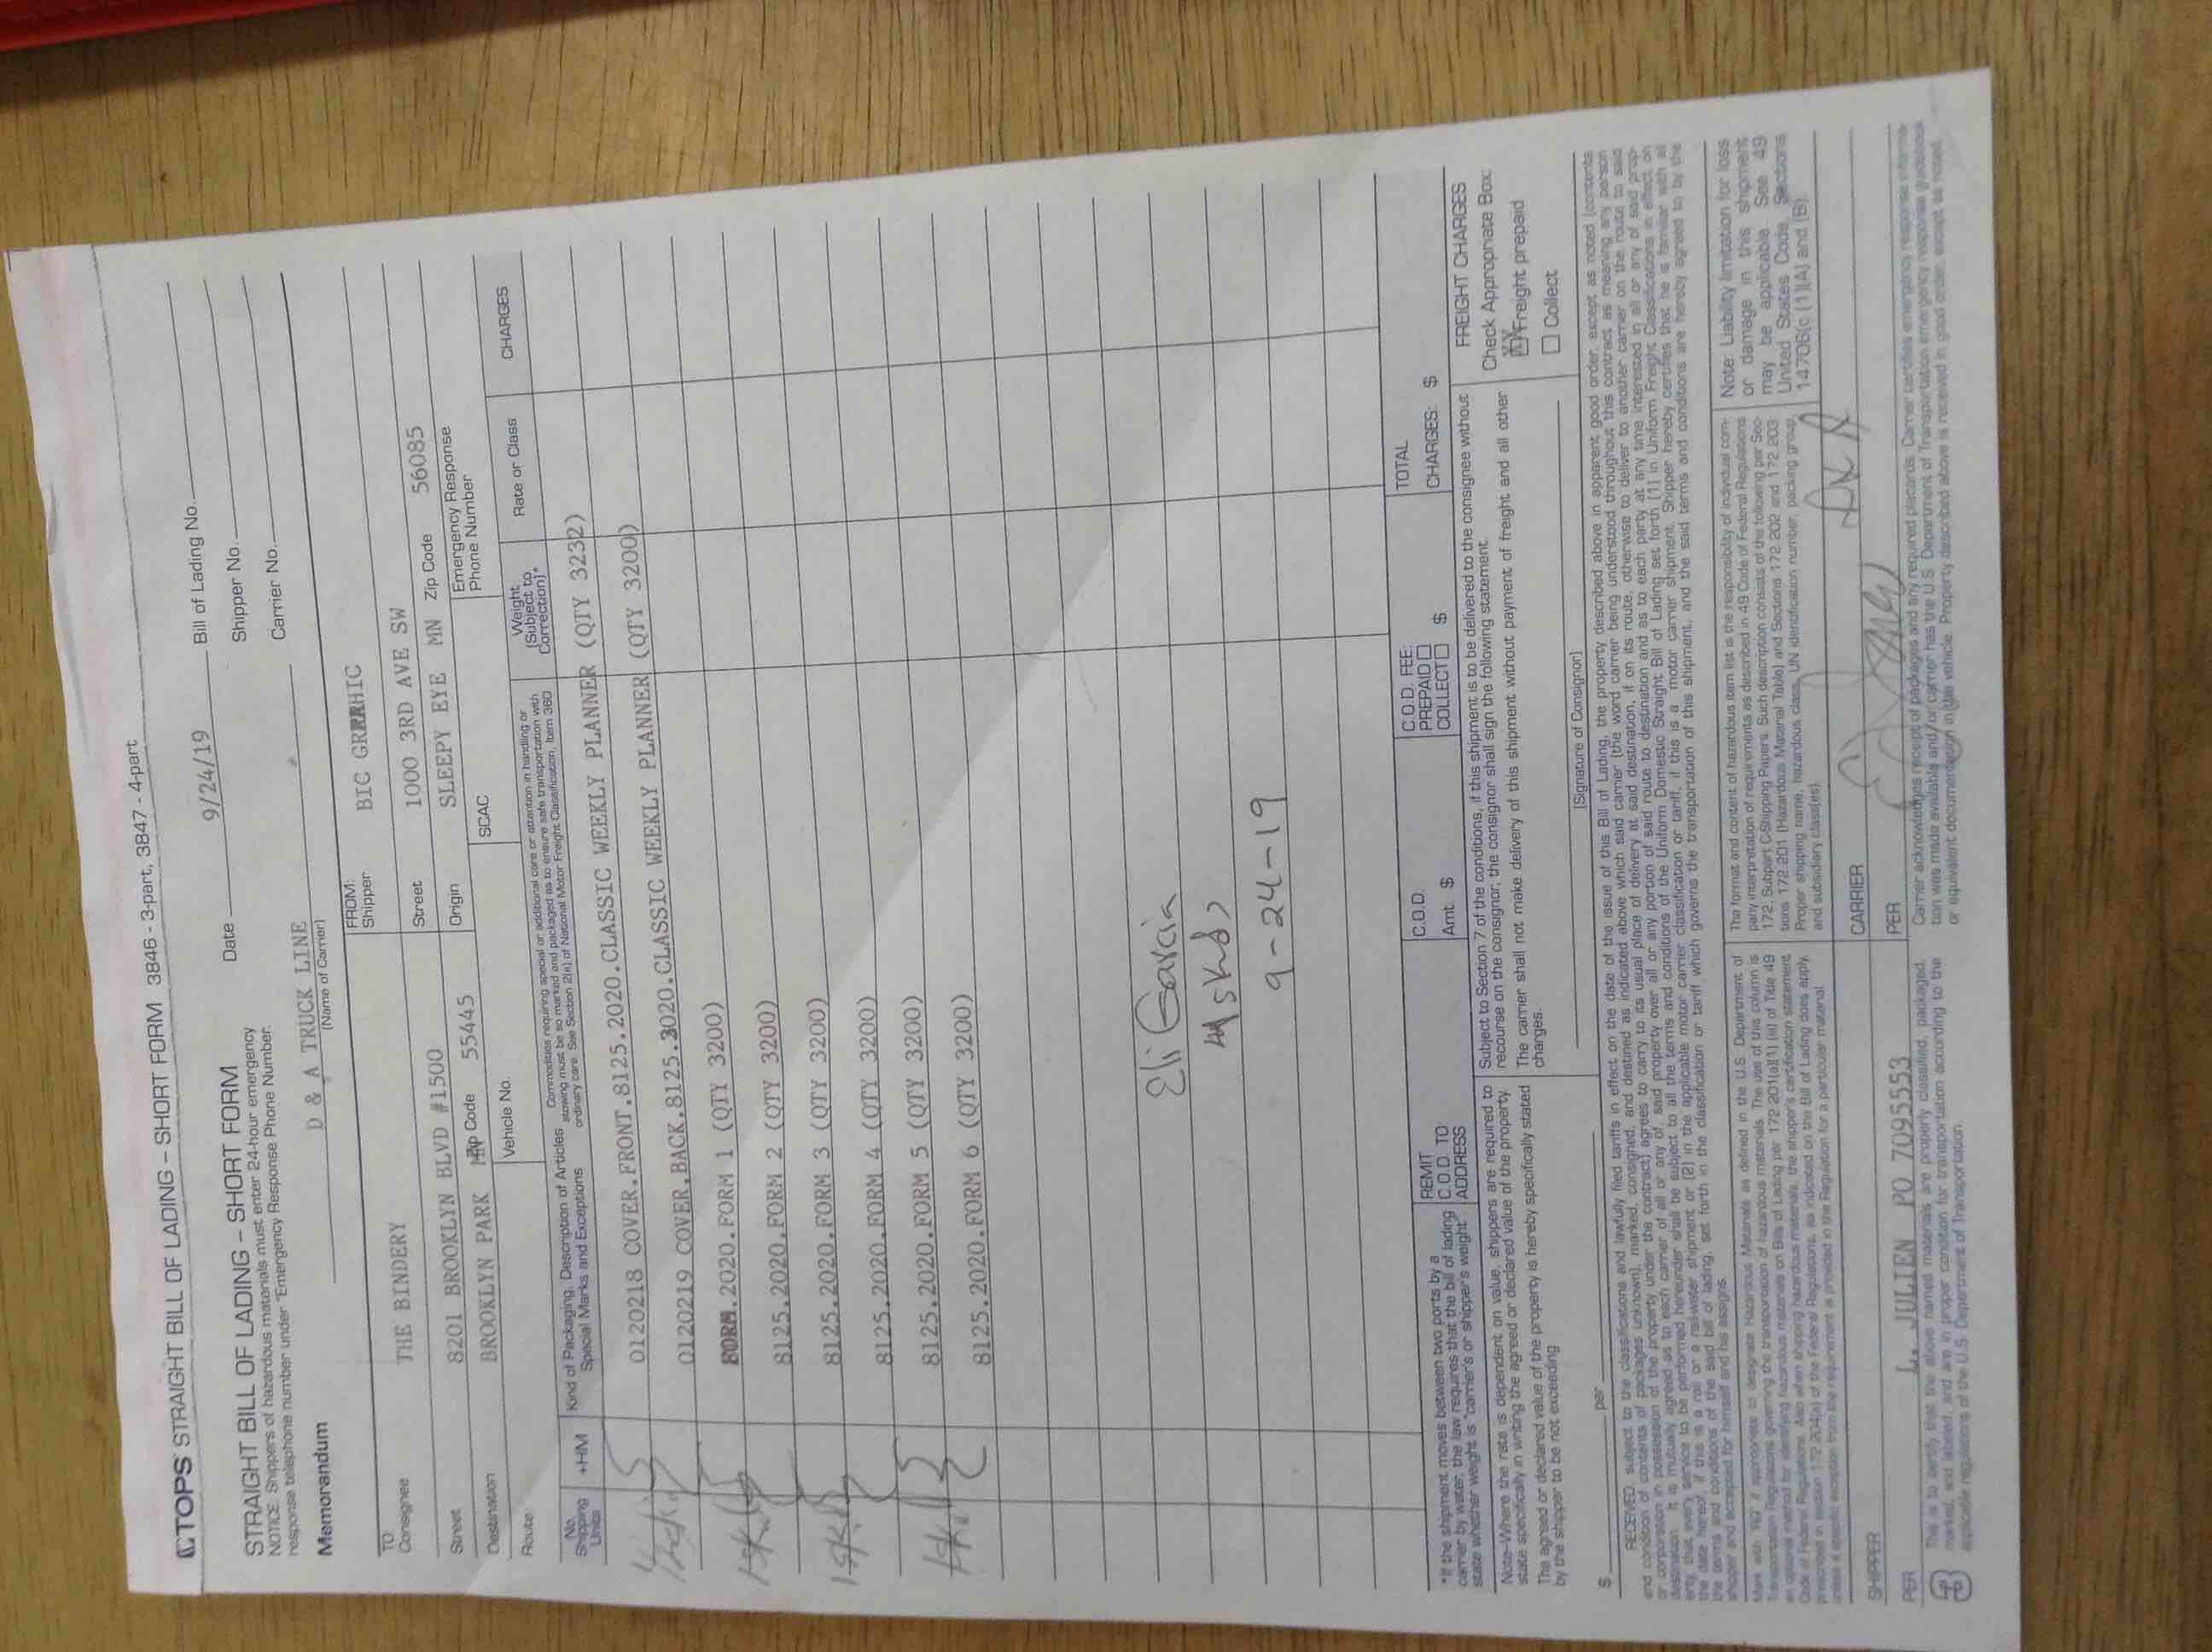 TOPS STRAIGHT BILL OF LADING – SHORT FORM 3846 - 3-part, 3847 - 4-part
STRAIGHT BILL OF LADING – SHORT FORM
NOTICE: Shippers of hazardous materials must enter 24-hour emergency
response telephone number under "Emergency Response Phone Number.
Date 9/24/19
Bill of Lading No.
Shipper No.
Carrier No.
Memorandum
D & A TRUCK LINE
(Name of Carrier)
TO:
Consignee THE BINDERY
Street 8201 BROOKLYN BLVD #1500
Destination BROOKLYN PARK Zip Code 55445
FROM:
Shipper BIC GRAPHIC
Street 1000 3RD AVE SW
Origin SLEEPY EYE MN Zip Code 56085
Route
Vehicle No.
SCAC
Emergency Response
Phone Number
No.
Shipping
Units
+HM
Kind of Packaging, Description of Articles
Special Marks and Exceptions
Commodities requiring special or additional care or attention in handling or
stowing must be so marked and packaged as to ensure safe transportation with
ordinary care. See Section 2(e) of National Motor Freight Classification, Item 360
Weight
(Subject to
Correction)*
Rate or Class
CHARGES
0120218 COVER.FRONT.8125.2020.CLASSIC WEEKLY PLANNER (QTY 3232)
0120219 COVER.BACK.8125.2020.CLASSIC WEEKLY PLANNER (QTY 3200)
.2020.FORM 1 (QTY 3200)
8125.2020.FORM 2 (QTY 3200)
8125.2020.FORM 3 (QTY 3200)
8125.2020.FORM 4 (QTY 3200)
8125.2020.FORM 5 (QTY 3200)
8125.2020.FORM 6 (QTY 3200)
Eli Garcia
4 skds
9-24-19
*If the shipment moves between two ports by a
carrier by water, the law requires that the bill of lading
state whether weight is "carrier's or shipper's weight"
REMIT
C.O.D. TO:
ADDRESS
C.O.D.
Amt. $
C.O.D. FEE:
PREPAID
COLLECT $
TOTAL
CHARGES: $
Note–Where the rate is dependent on value, shippers are required to
state specifically in writing the agreed or declared value of the property.
The agreed or declared value of the property is hereby specifically stated
by the shipper to be not exceeding
$ per
Subject to Section 7 of the conditions, if this shipment is to be delivered to the consignee without
recourse on the consignor, the consignor shall sign the following statement.
The carrier shall not make delivery of this shipment without payment of freight and all other
charges.
(Signature of Consignor)
FREIGHT CHARGES
Check Appropriate Box:
Freight prepaid
Collect
RECEIVED, subject to the classifications and lawfully filed tariffs in effect on the date of the issue of this Bill of Lading, the property described above in apparent good order, except as noted (contents
and condition of contents of packages unknown), marked, consigned, and destined as indicated above which said carrier (the word carrier being understood throughout this contract as meaning any person
or corporation in possession of the property under the contract) agrees to carry to its usual place of delivery at said destination, if on its route, otherwise to deliver to another carrier on the route to said
destination. It is mutually agreed as to each carrier of all or any of, said property over all or any portion of said route to destination and as to each party at any time interested in all or any of said prop-
erty, that every service to be performed hereunder shall be subject to all the terms and conditions of the Uniform Domestic Straight Bill of Lading set forth (1) in Uniform Freight Classifications in effect on
the date hereof, if this is a rail or a rail-water shipment or (2) in the applicable motor carrier classification or tariff, if this is a motor carrier shipment. Shipper hereby certifies that he is familiar with all
the terms and conditions of the said bill of lading, set forth in the classification or tariff which governs the transportation of this shipment, and the said terms and conditions are hereby agreed to by the
shipper and accepted for himself and his assigns.
Mark with "RQ" if appropriate to designate Hazardous Materials as defined in the U.S. Department of
Transportation Regulations governing the transportation of hazardous materials. The use of this column is
an optional method for identifying hazardous materials on Bills of Lading per 172.201(a)(1)(iii) of Title 49
Code of Federal Regulations. Also when shipping hazardous materials, the shipper's certification statement
prescribed in section 172.204(a) of the Federal Regulations, as indicated on the Bill of Lading does apply,
unless a specific exception from the requirement is provided in the Regulation for a particular material.
The format and content of hazardous item list is the responsibility of individual com-
pany interpretation of requirements as described in 49 Code of Federal Regulations
172, Subpart C-Shipping Papers. Such description consists of the following per Sec-
tions 172.201 (Hazardous Material Table) and Sections 172.202 and 172.203:
Proper shipping name, hazardous class, UN identification number, packing group,
and subsidiary class(es).
Note: Liability limitation for loss
or damage in this shipment
may be applicable. See 49
United States Code, Sections
14706(c)(1)(A) and (B).
SHIPPER
PER L. JULIEN PO 7095553
CARRIER
PER
This is to certify that the above named materials are properly classified, packaged,
marked, and labeled, and are in proper condition for transportation according to the
applicable regulations of the U.S. Department of Transportation.
Carrier acknowledges receipt of packages and any required placards. Carrier certifies emergency response informa-
tion was made available and/or carrier has the U.S. Department of Transportation emergency response guidebook
or equivalent documentation in the vehicle. Property described above is received in good order, except as noted.